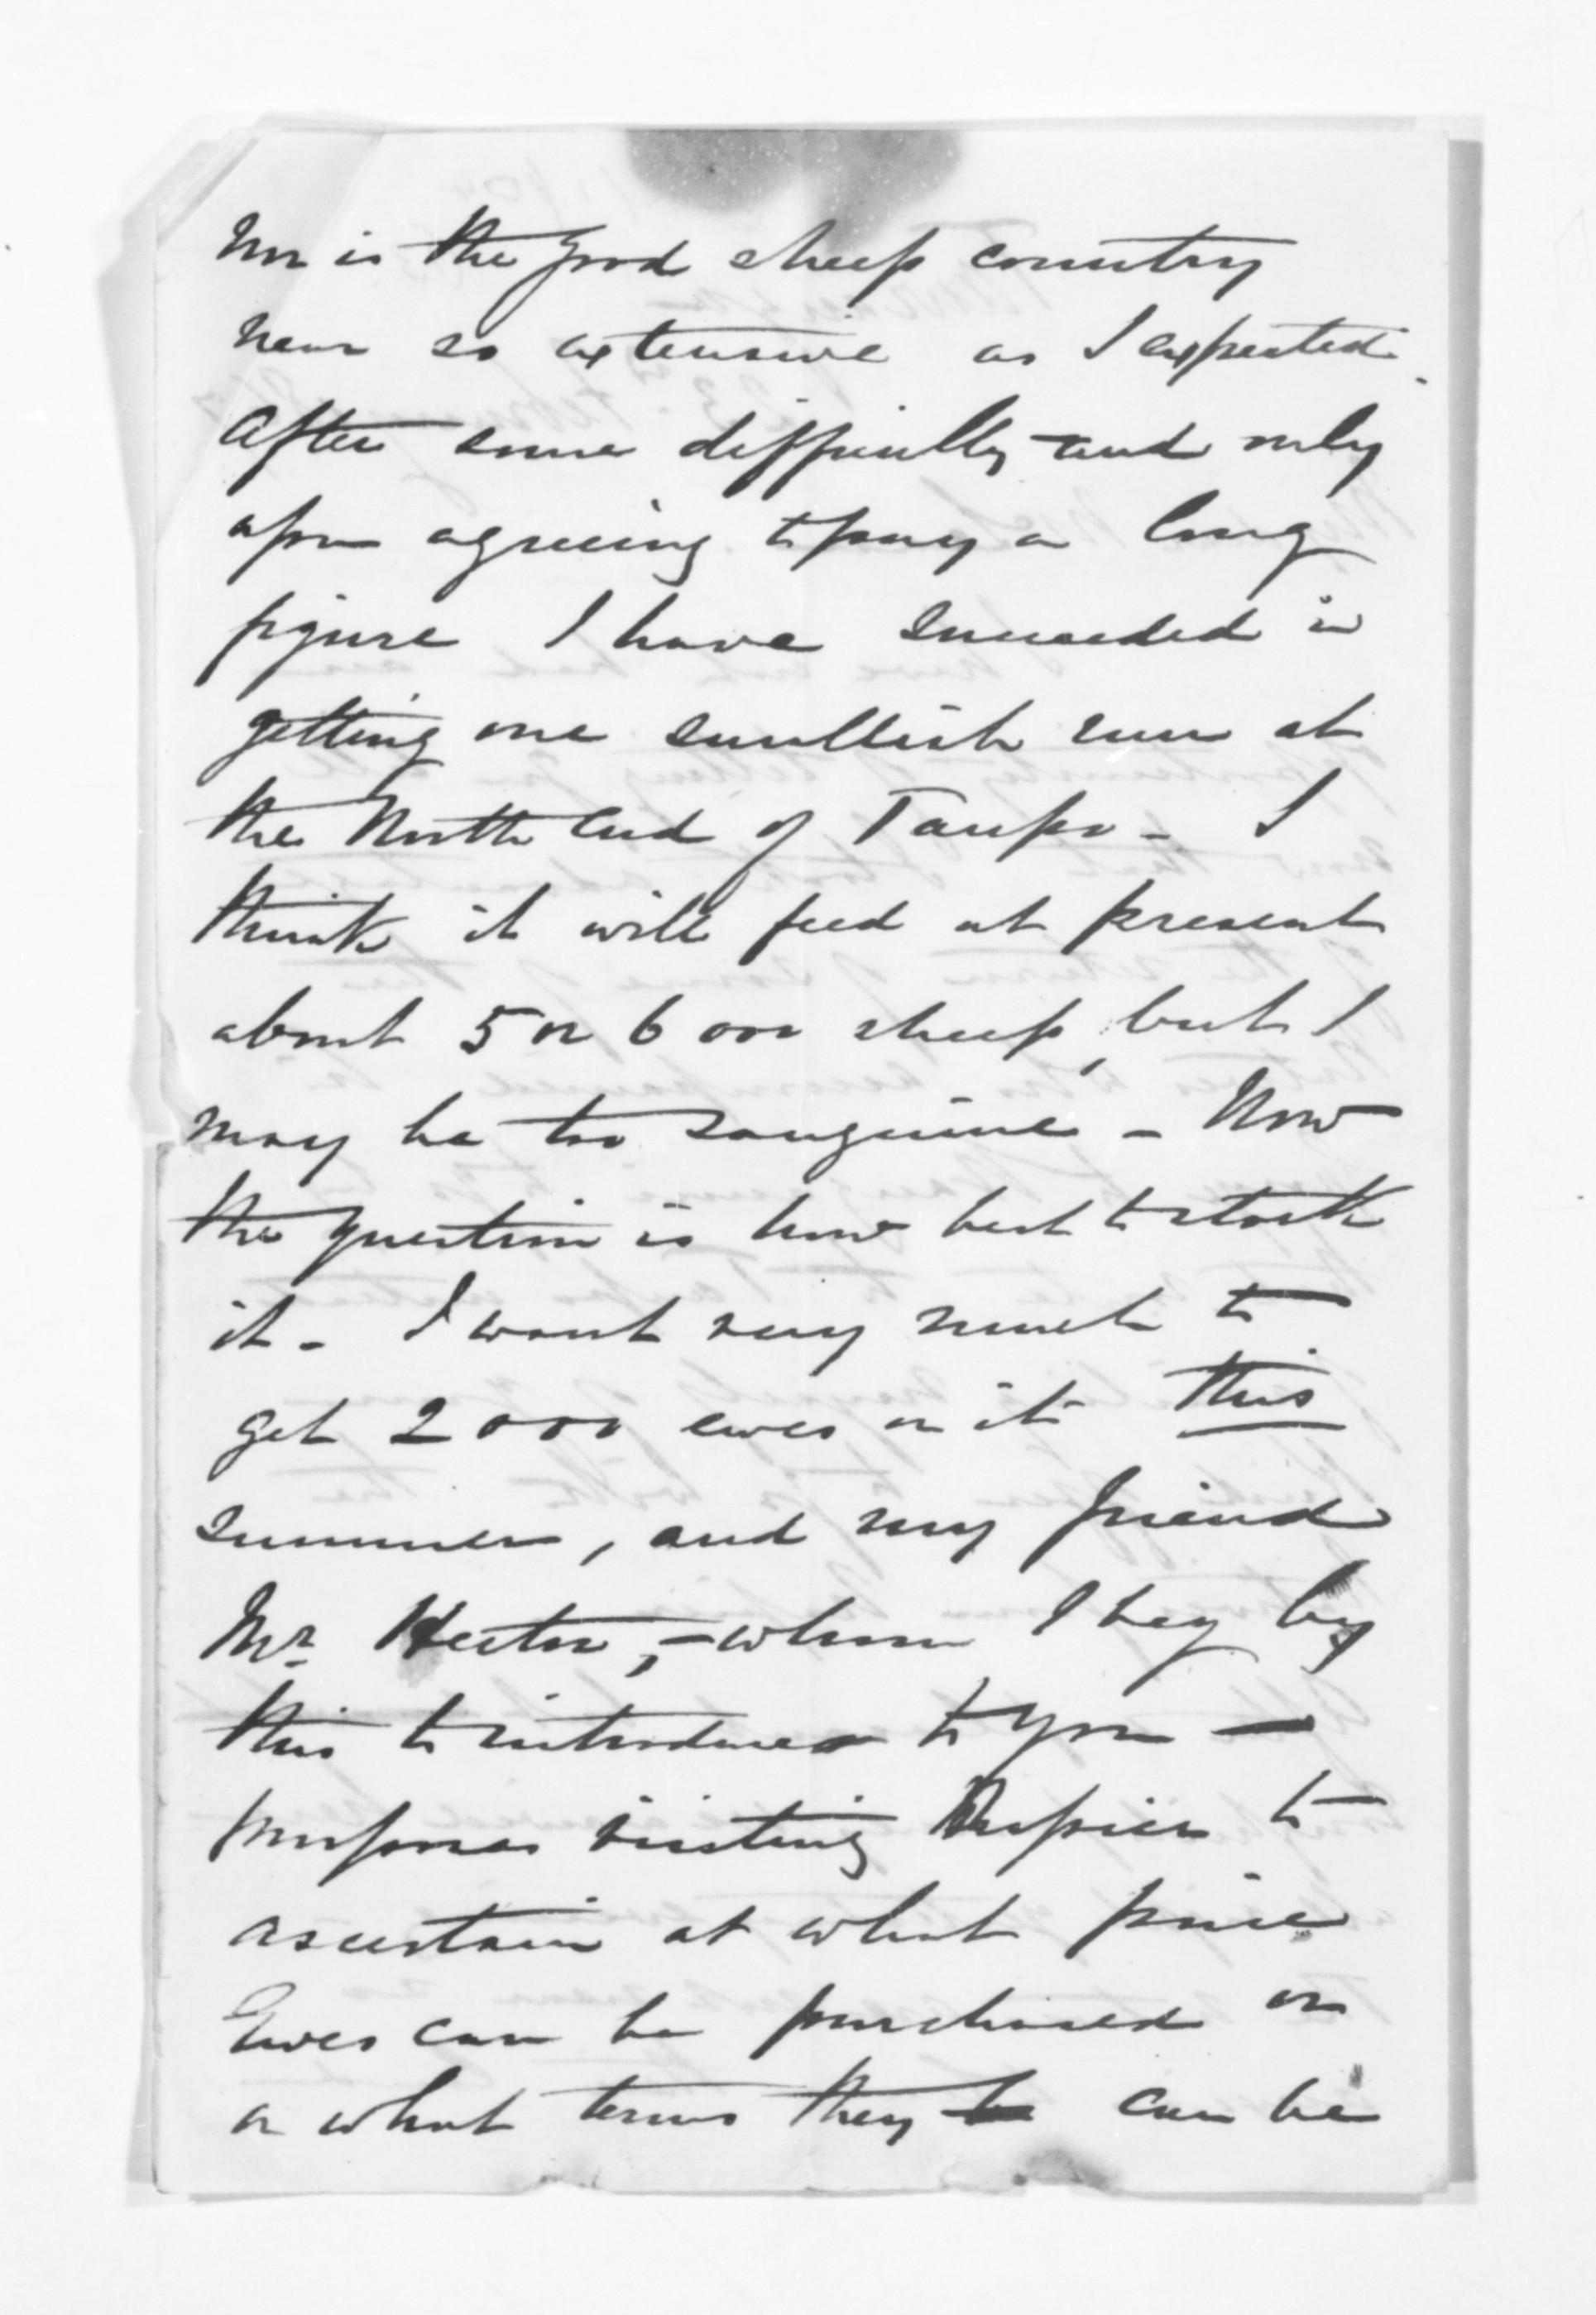 nor is the good sheep country
near so extensive as I expected.
After some difficulty and only
upon agreeing to pay a long
figure I have succeeded in
getting one smallish run at
the North End of Taupo - I
think it will feed at present
about 5 or 6 000 sheep, but I
may be too sanguine - Now
the question is how best to stock
it - I want very much to
get 2000 ewes on it this
summer, and my friend
Mr. Hector, - whom I beg by
this to introduce to you -
proposes visiting Napier to
ascertain at what price
Ewes can be purchased or
on what terms they be can be